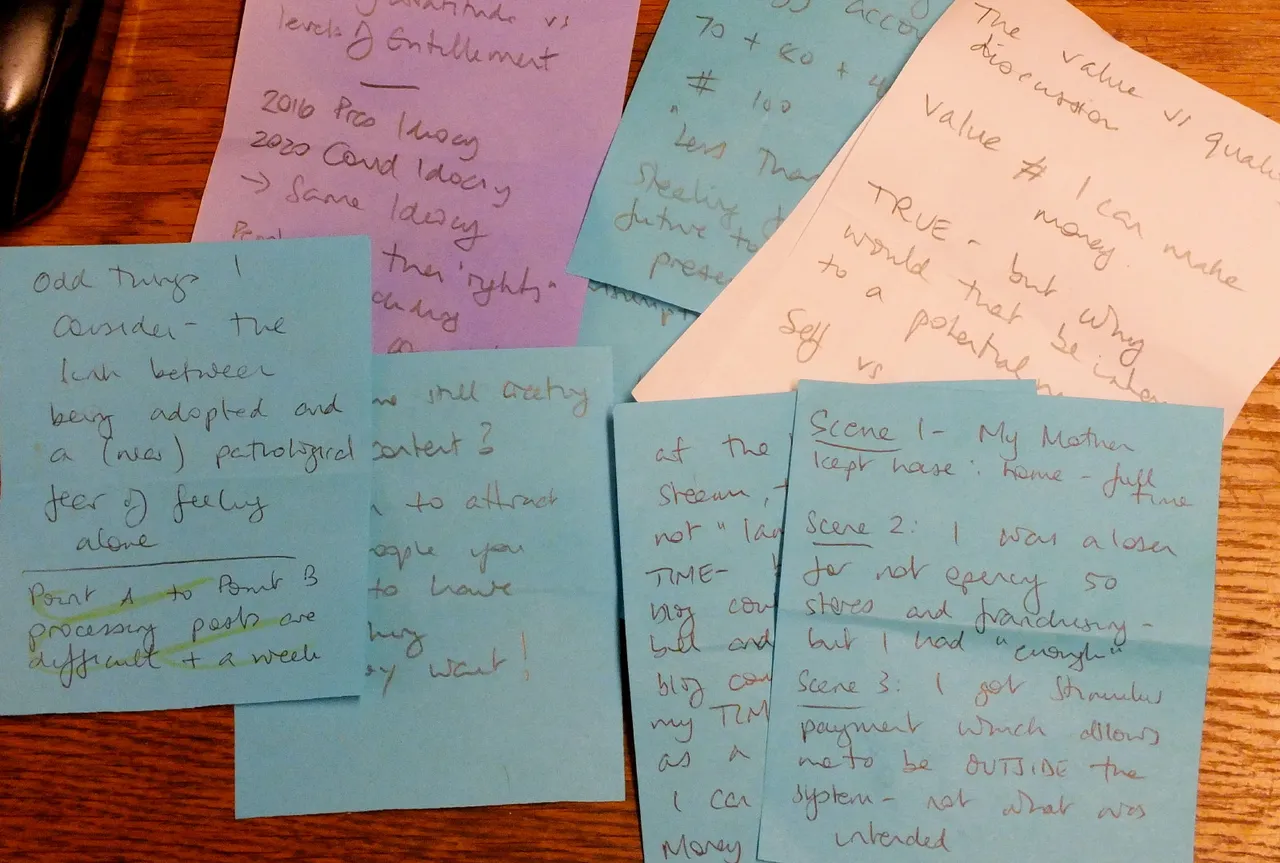 levels of Entitlement
2016 Prco Idiocy
2020 Covid Idiocy
→ Same Idiocy
their 'rights"
accou
70 + 20 + 4
# 100
"Less Than
Stealing f
future to
presen
The value vs quali
discussion
Value # I can make
money.
TRUE - but why
would that be
to a potential
Self vs
Odd things I
consider - the
link between
being adopted and
a (near) pathological
fear of feeling
alone
Point A to Point B
processing posts are
difficult + a week
still creating
content?
to attract
people you
to have
want!
at the
stream,
not "
TIME-
blog cou
bill and
blog cou
my TIM
as a
I can
Money
Scene 1 - My Mother
kept house: home - full
time
Scene 2: I was a loser
for not opening 50
stores and franchising -
but I had "enough"
Scene 3: I got stimulus
payment which allows
me to be OUTSIDE the
system - not what was
intended